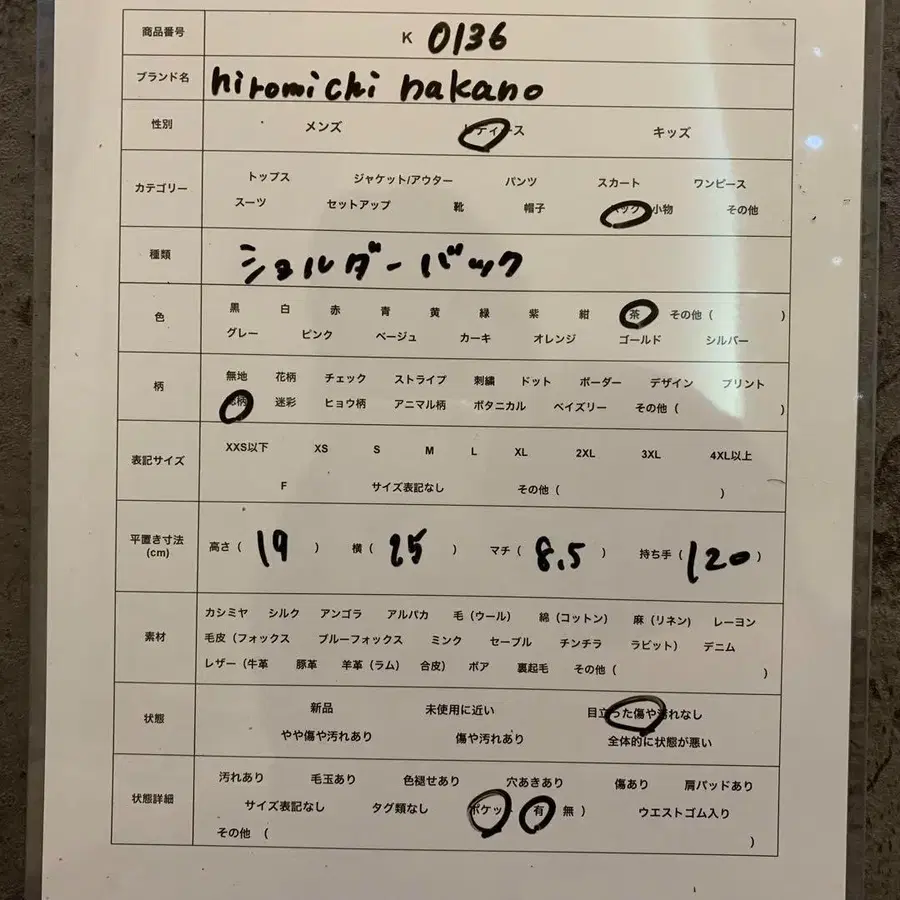 商品番号 K 0136
ブランド名 hiromichi nakano
性別 メンズ レディース キッズ
カテゴリー トップス ジャケット/アウター パンツ スカート ワンピース
スーツ セットアップ 靴 帽子 バッグ/小物 その他
種類 ショルダーバック
色 黒 白 赤 青 黄 緑 紫 紺 茶 その他 ( )
グレー ピンク ベージュ カーキ オレンジ ゴールド シルバー
柄 無地 花柄 チェック ストライプ 刺繍 ドット ボーダー デザイン プリント
総柄 迷彩 ヒョウ柄 アニマル柄 ボタニカル ペイズリー その他 ( )
表記サイズ XXS以下 XS S M L XL 2XL 3XL 4XL以上
F サイズ表記なし その他 ( )
平置き寸法 (cm) 高さ ( 19 ) 横 ( 25 ) マチ ( 8.5 ) 持ち手 ( 120 )
素材 カシミヤ シルク アンゴラ アルパカ 毛 (ウール) 綿 (コットン) 麻 (リネン) レーヨン
毛皮 (フォックス ブルーフォックス ミンク セーブル チンチラ ラビット) デニム
レザー (牛革 豚革 羊革 (ラム) 合皮) ボア 裏起毛 その他 ( )
状態 新品 未使用に近い 目立った傷や汚れなし
やや傷や汚れあり 傷や汚れあり 全体的に状態が悪い
状態詳細 汚れあり 毛玉あり 色褪せあり 穴あきあり 傷あり 肩パッドあり
サイズ表記なし タグ類なし ポケット 有 無 ) ウエストゴム入り
その他 ( )